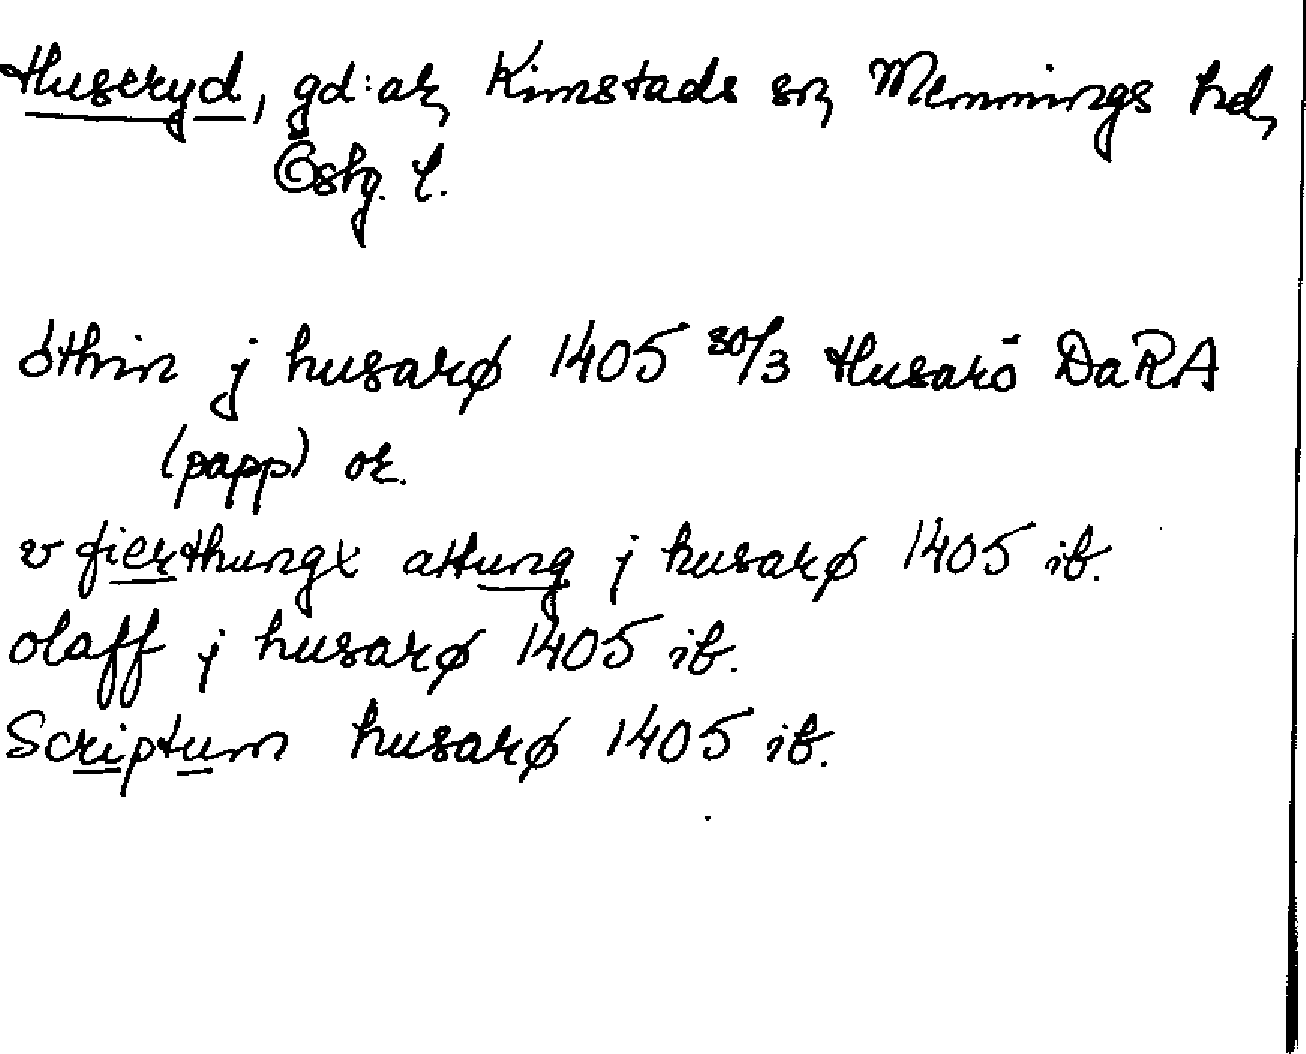 Huseryd, gd:ar, Kimstads sn, Memmings hd,
Östg. l.
óthin j husarø 1405 30/3 Husarö DaRA
(papp) or.
v fierthungx attung j husarø 1405 ib.
olaff j husarø 1405 ib.
Scriptum husarø 1405 ib.